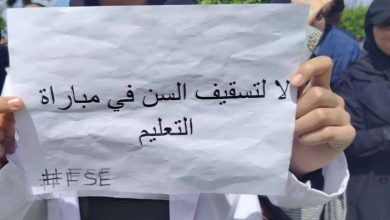 لا لتسقيف السن في مباراة
التعليم
#FSE